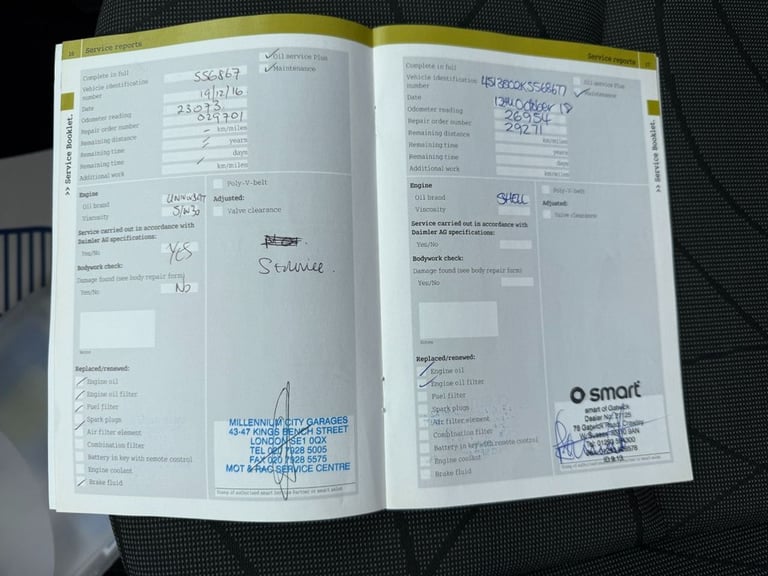 16 Service reports
Oil service Plus
Maintenance
Complete in full
Vehicle identification number 556867
Date 19/12/16
Odometer reading 23073
Repair order number 029701
Remaining distance - km/miles
Remaining time years
Remaining time days
Additional work km/miles
>> Service Booklet.
Engine
Oil brand
Viscosity 5/W30
Service carried out in accordance with
Daimler AG specifications:
Yes/No YES
Bodywork check:
Damage found (see body repair form)
Yes/No No
Notes
Replaced/renewed:
Engine oil
Engine oil filter
Fuel filter
Spark plugs
Air filter element
Combination filter
Battery in key with remote control
Engine coolant
Brake fluid
Poly-V-belt
Adjusted:
Valve clearance
Service.
MILLENNIUM CITY GARAGES
43-47 KINGS BENCH STREET
LONDON SE1 0QX
TEL 020 7928 5005
FAX 020 7928 5575
MOT & RAC SERVICE CENTRE
Stamp of authorised smart Service Partner or smart salon
Service reports 17
Oil service Plus
Maintenance
Complete in full
Vehicle identification number
Date 12th October 18
Odometer reading 26954
Repair order number 29271
Remaining distance km/miles
Remaining time years
Remaining time days
Additional work km/miles
>> Service Booklet.
Engine
Oil brand SHELL
Viscosity
Service carried out in accordance with
Daimler AG specifications:
Yes/No
Bodywork check:
Damage found (see body repair form)
Yes/No
Notes
Replaced/renewed:
Engine oil
Engine oil filter
Fuel filter
Spark plugs
Air filter element
Combination filter
Battery in key with remote control
Engine coolant
Brake fluid
Poly-V-belt
Adjusted:
Valve clearance
smart
smart of Gatwick
Dealer No: 27125
78 Gatwick Road, Crawley
Stamp of authorised smart Service Partner or smart salon